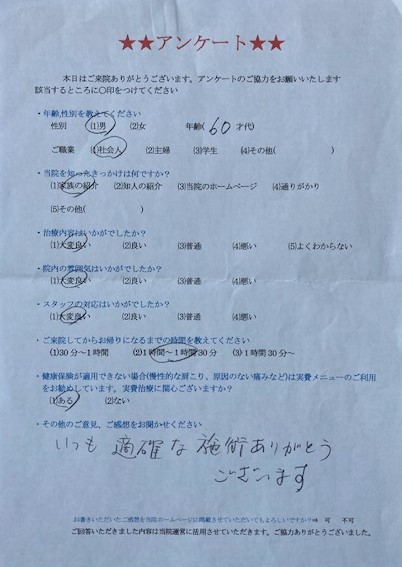 ★★アンケート★★
本日はご来院ありがとうございます。アンケートのご協力をお願いいたします
該当するところに〇印をつけてください
・年齢,性別を教えてください
性別 (1)男 (2)女 年齢( 60 才代)
ご職業 (1)社会人 (2)主婦 (3)学生 (4)その他( )
・当院を知ったきっかけは何ですか?
(1)家族の紹介 (2)知人の紹介 (3)当院のホームページ (4)通りがかり
(5)その他( )
・治療内容はいかがでしたか?
(1)大変良い (2)良い (3)普通 (4)悪い (5)よくわからない
・院内の雰囲気はいかがでしたか?
(1)大変良い (2)良い (3)普通 (4)悪い
・スタッフの対応はいかがでしたか?
(1)大変良い (2)良い (3)普通 (4)悪い
・ご来院してからお帰りになるまでの時間を教えてください
(1)30分～1時間 (2)1時間～1時間30分 (3)1時間30分～
・健康保険が適用できない場合(慢性的な肩こり、原因のない痛みなど)は実費メニューのご利用
をお勧めしています。実費治療に関心ございますか?
(1)ある (2)ない
・その他のご意見、ご感想をお聞かせください
いつも適確な施術ありがとう
ございます
お書きいただいたご感想を当院ホームページに掲載させていただいてもよろしいですか?⇒ 可 不可
ご回答いただきました内容は当院運営に活用させていただきます。ご協力ありがとうございました。